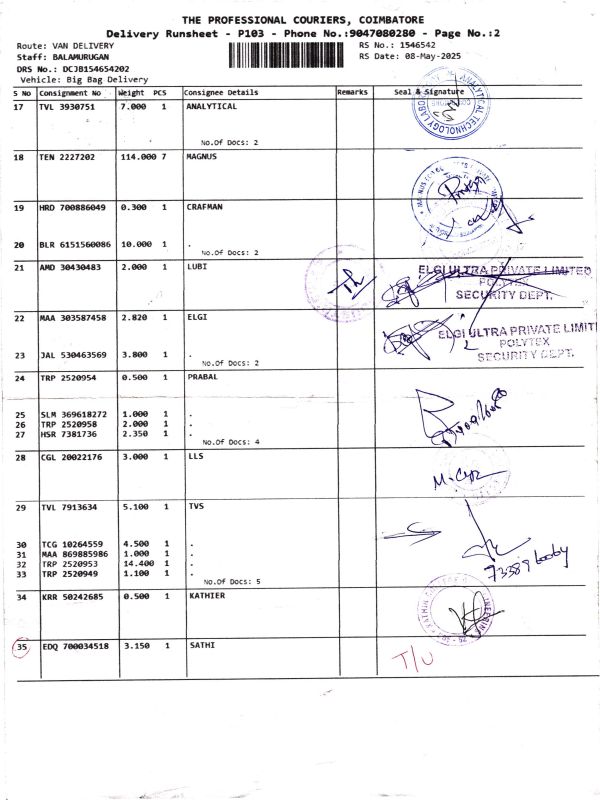 THE PROFESSIONAL COURIERS, COIMBATORE
Delivery Runsheet - P103 - Phone No.:9047080280 - Page No.:2
Route: VAN DELIVERY
RS No.: 1546542
Staff: BALAMURUGAN
RS Date: 08-May-2025
DRS No.: DCJB154654202
Vehicle: Big Bag Delivery
S No Consignment No Weight PCS Consignee Details Remarks Seal & Signature
17 TVL 3930751 7.000 1 ANALYTICAL
No.Of Docs: 2
18 TEN 2227202 114.000 7 MAGNUS
19 HRD 700886049 0.300 1 CRAFMAN
20 BLR 6151560086 10.000 1 .
No.Of Docs: 2
21 AMD 30430483 2.000 1 LUBI
ELGI ULTRA PRIVATE LIMITED
POLYTEX
SECURITY DEPT.
22 MAA 303587458 2.820 1 ELGI
ELGI ULTRA PRIVATE LIMIT
POLYTEX
SECURITY DEPT.
23 JAL 530463569 3.800 1 .
No.Of Docs: 2
24 TRP 2520954 0.500 1 PRABAL
25 SLM 369618272 1.000 1 .
26 TRP 2520958 2.000 1 .
27 HSR 7381736 2.350 1 .
No.Of Docs: 4
28 CGL 20022176 3.000 1 LLS
29 TVL 7913634 5.100 1 TVS
30 TCG 10264559 4.500 1 .
31 MAA 869885986 1.000 1 .
32 TRP 2520953 14.400 1 .
33 TRP 2520949 1.100 1 .
No.Of Docs: 5
34 KRR 50242685 0.500 1 KATHIER
35 EDQ 700034518 3.150 1 SATHI
T/U